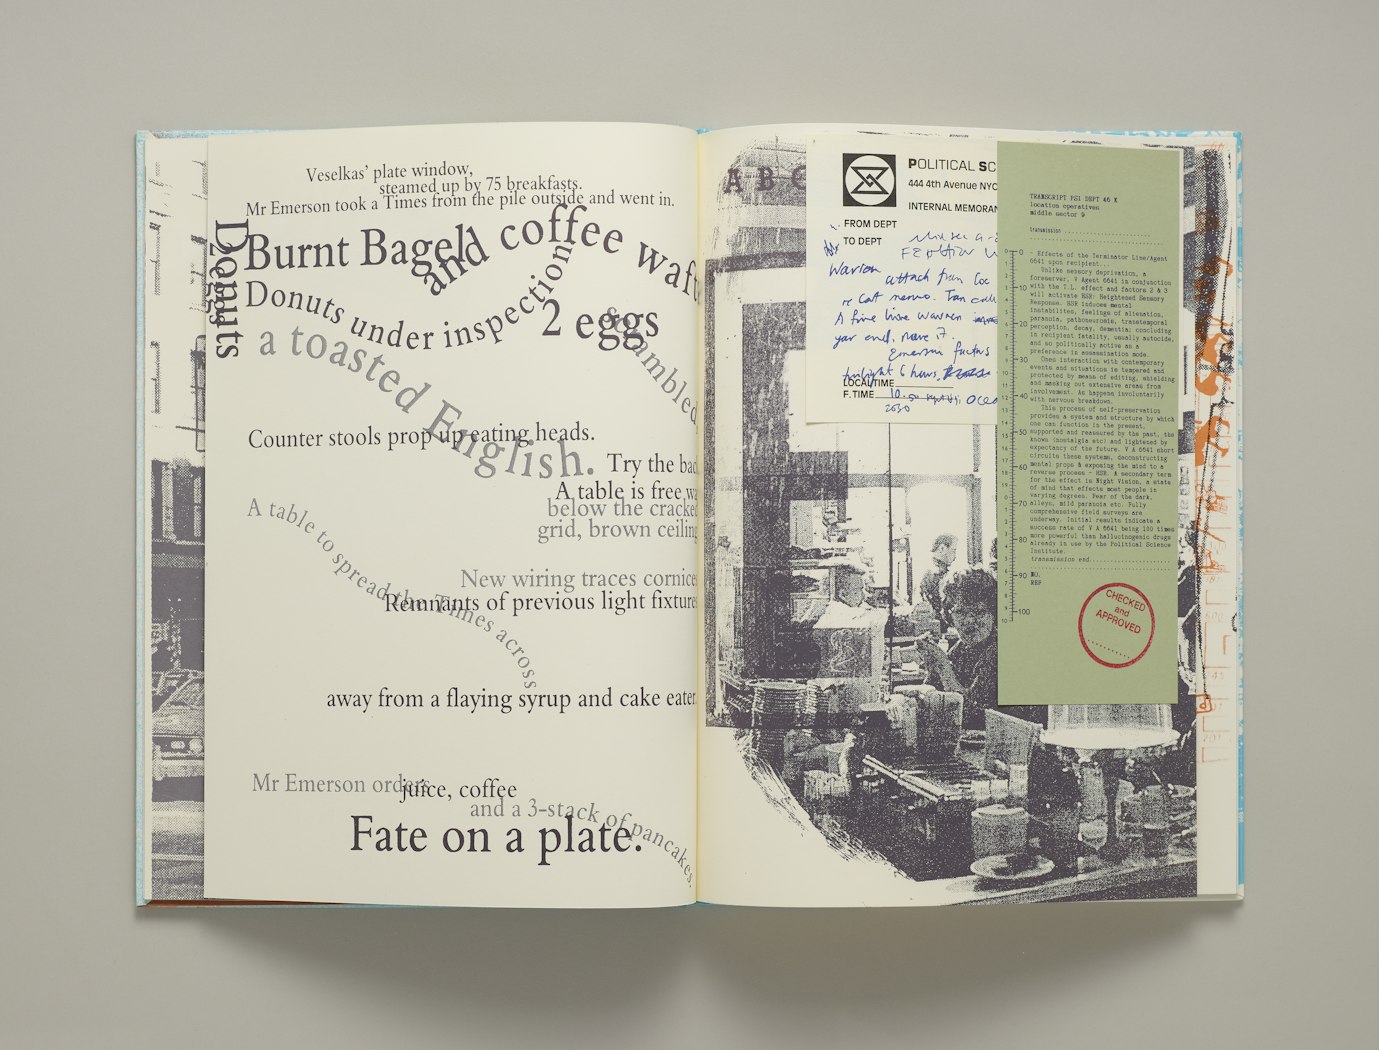 Veselkas' plate window,
steamed up by 75 breakfasts.
Mr Emerson took a Times from the pile outside and went in.
Donuts
2 eggs
Burnt Bagel
and coffee waft
Donuts under inspection
2 eggs
scrambled
a toasted English.
Counter stools prop up eating heads.
Try the bac
A table is free wa
below the cracked
grid, brown ceiling
A table to spread the Times across
New wiring traces cornice
Remnants of previous light fixture
away from a flaying syrup and cake eater
Mr Emerson orders
juice, coffee
and a 3-stack of pancakes.
Fate on a plate.
A B C
POLITICAL SC
444 4th Avenue NYC
INTERNAL MEMORAN
FROM DEPT
TO DEPT
Warren
attack from
re Cat
A fine line Warren
year end, move it.
Emerson factors
twilight 6 hours,
LOCAL/TIME
F. TIME 10.50
2030
TRANSCRIPT PSI DEPT 46 K
location operatives
middle sector 9
transmission
- Effects of the Terminator Line/Agent
6641 upon recipient.
Unlike sensory deprivation, a
foreserver, V Agent 6641 in conjunction
with the T.L. effect and factors 2 & 3
will activate HSR: Heightened Sensory
Response. HSR induces mental
instabilites, feelings of alienation,
paranoia, pathoneurosis, transtemporal
perception, decay, dementia: concluding
in recipient fatality, usually autocide,
and so politically active as a
preference in assassination mode.
Ones interaction with contemporary
events and situations is tempered and
protected by means of editing, shielding
and masking out extensive areas from
involvement. As happens involuntarily
with nervous breakdown.
This process of self-preservation
provides a system and structure by which
one can function in the present,
supported and reassured by the past, the
known (nostalgia etc) and lightened by
expectancy of the future. V A 6641 short
circuits these systems, deconstructing
mental props & exposing the mind to a
reverse process - HSR. A secondary term
for the effect is Night Vision, a state
of mind that effects most people in
varying degrees. Fear of the dark,
alleys, mild paranoia etc. Fully
comprehensive field surveys are
underway. Initial results indicate a
success rate of V A 6641 being 100 times
more powerful than hallucinogenic drugs
already in use by the Political Science
Institute.
transmission end.
NO.
REF
0
10
20
30
40
50
60
70
80
90
100
CHECKED
and
APPROVED